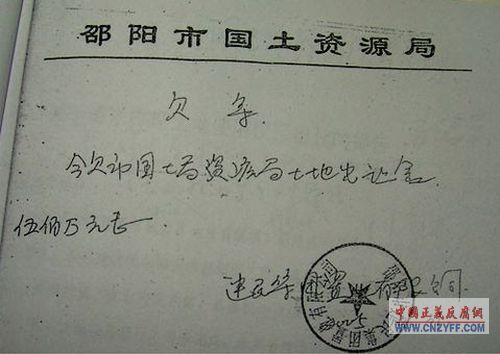 邵阳市国土资源局
欠条
今欠市国土资源局土地出让金
伍佰万元正
建设集团
有限公司
中國正義反腐網
WWW.CNZYFF.COM